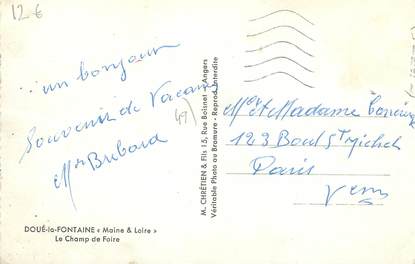 12 €
un bonjour
Souvenir de Vacances
Mr Bribard
49
DOUÉ-la-FONTAINE « Maine & Loire »
Le Champ de Foire
M. CHRÉTIEN & Fils 15, Rue Boisnet - Angers
Véritable Photo au Bromure - Reprod. Interdite
Mr et Madame
123 Boul St Michel
Paris